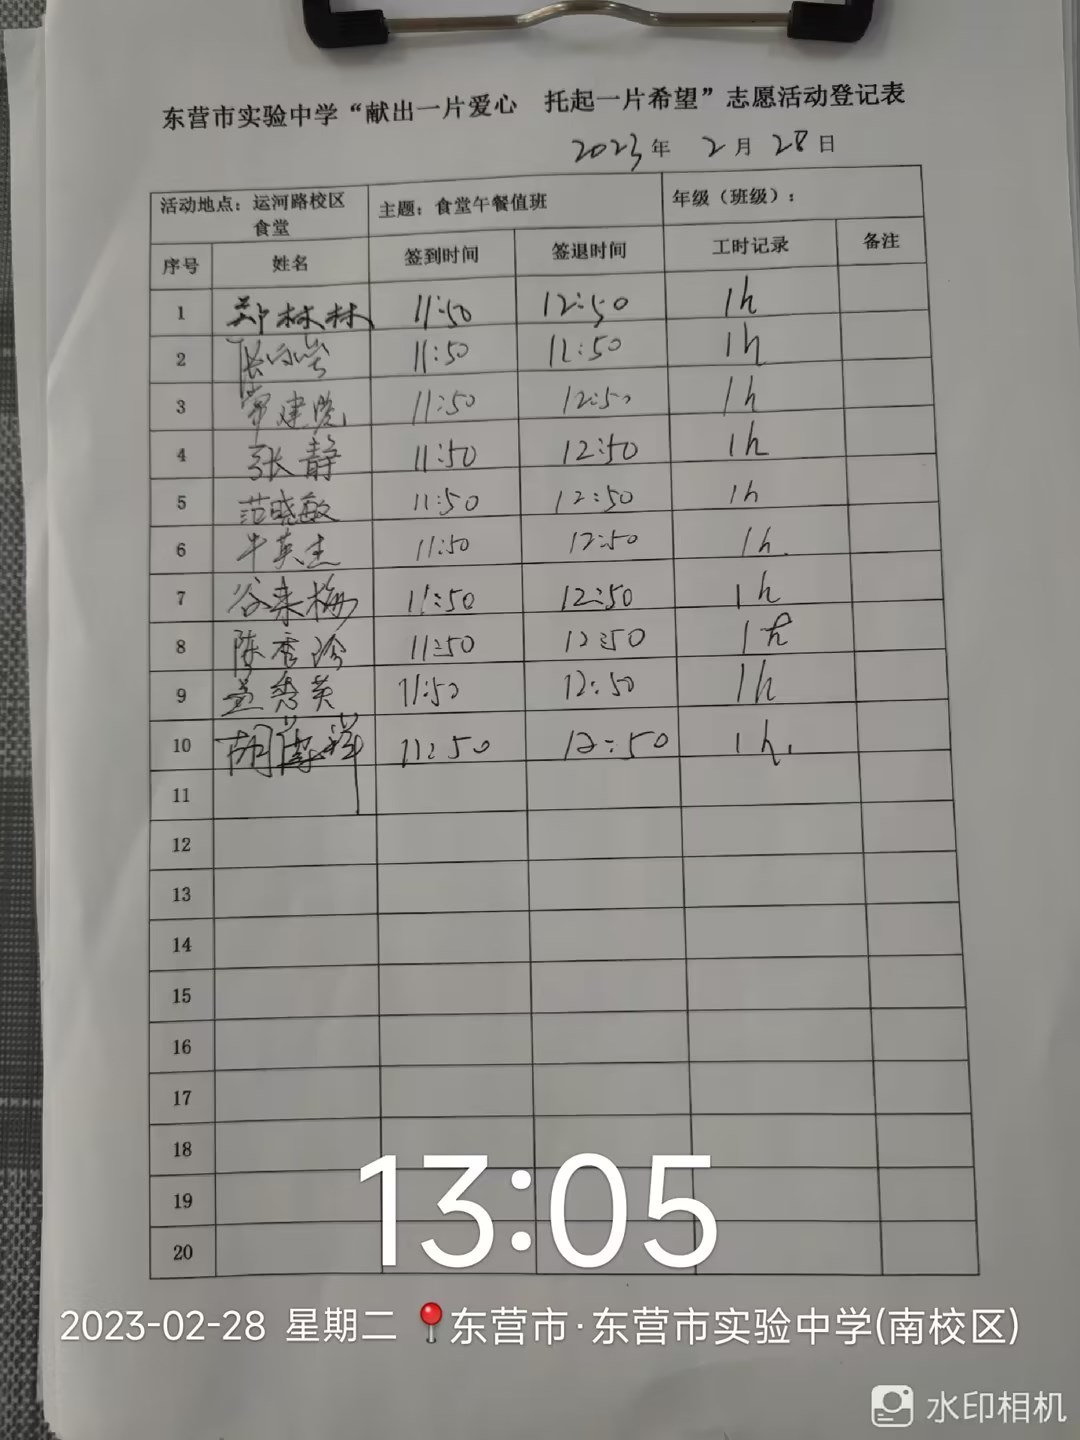 东营市实验中学“献出一片爱心 托起一片希望”志愿活动登记表
2023年 2月 28日
活动地点：运河路校区食堂 主题：食堂午餐值班 年级（班级）：
序号 姓名 签到时间 签退时间 工时记录 备注
1 郑林林 11:50 12:50 1h
2 11:50 12:50 1h
3 常建 11:50 12:50 1h
4 张静 11:50 12:50 1h
5 范晓敏 11:50 12:50 1h
6 牛英杰 11:50 12:50 1h.
7 谷来梅 11:50 12:50 1h
8 陈秀珍 11:50 12:50 1h
9 孟秀英 11:50 12:50 1h
10 胡 祥 11:50 12:50 1h.
11
12
13
14
15
16
17
18
19
20
13:05
2023-02-28 星期二 东营市·东营市实验中学(南校区)
水印相机